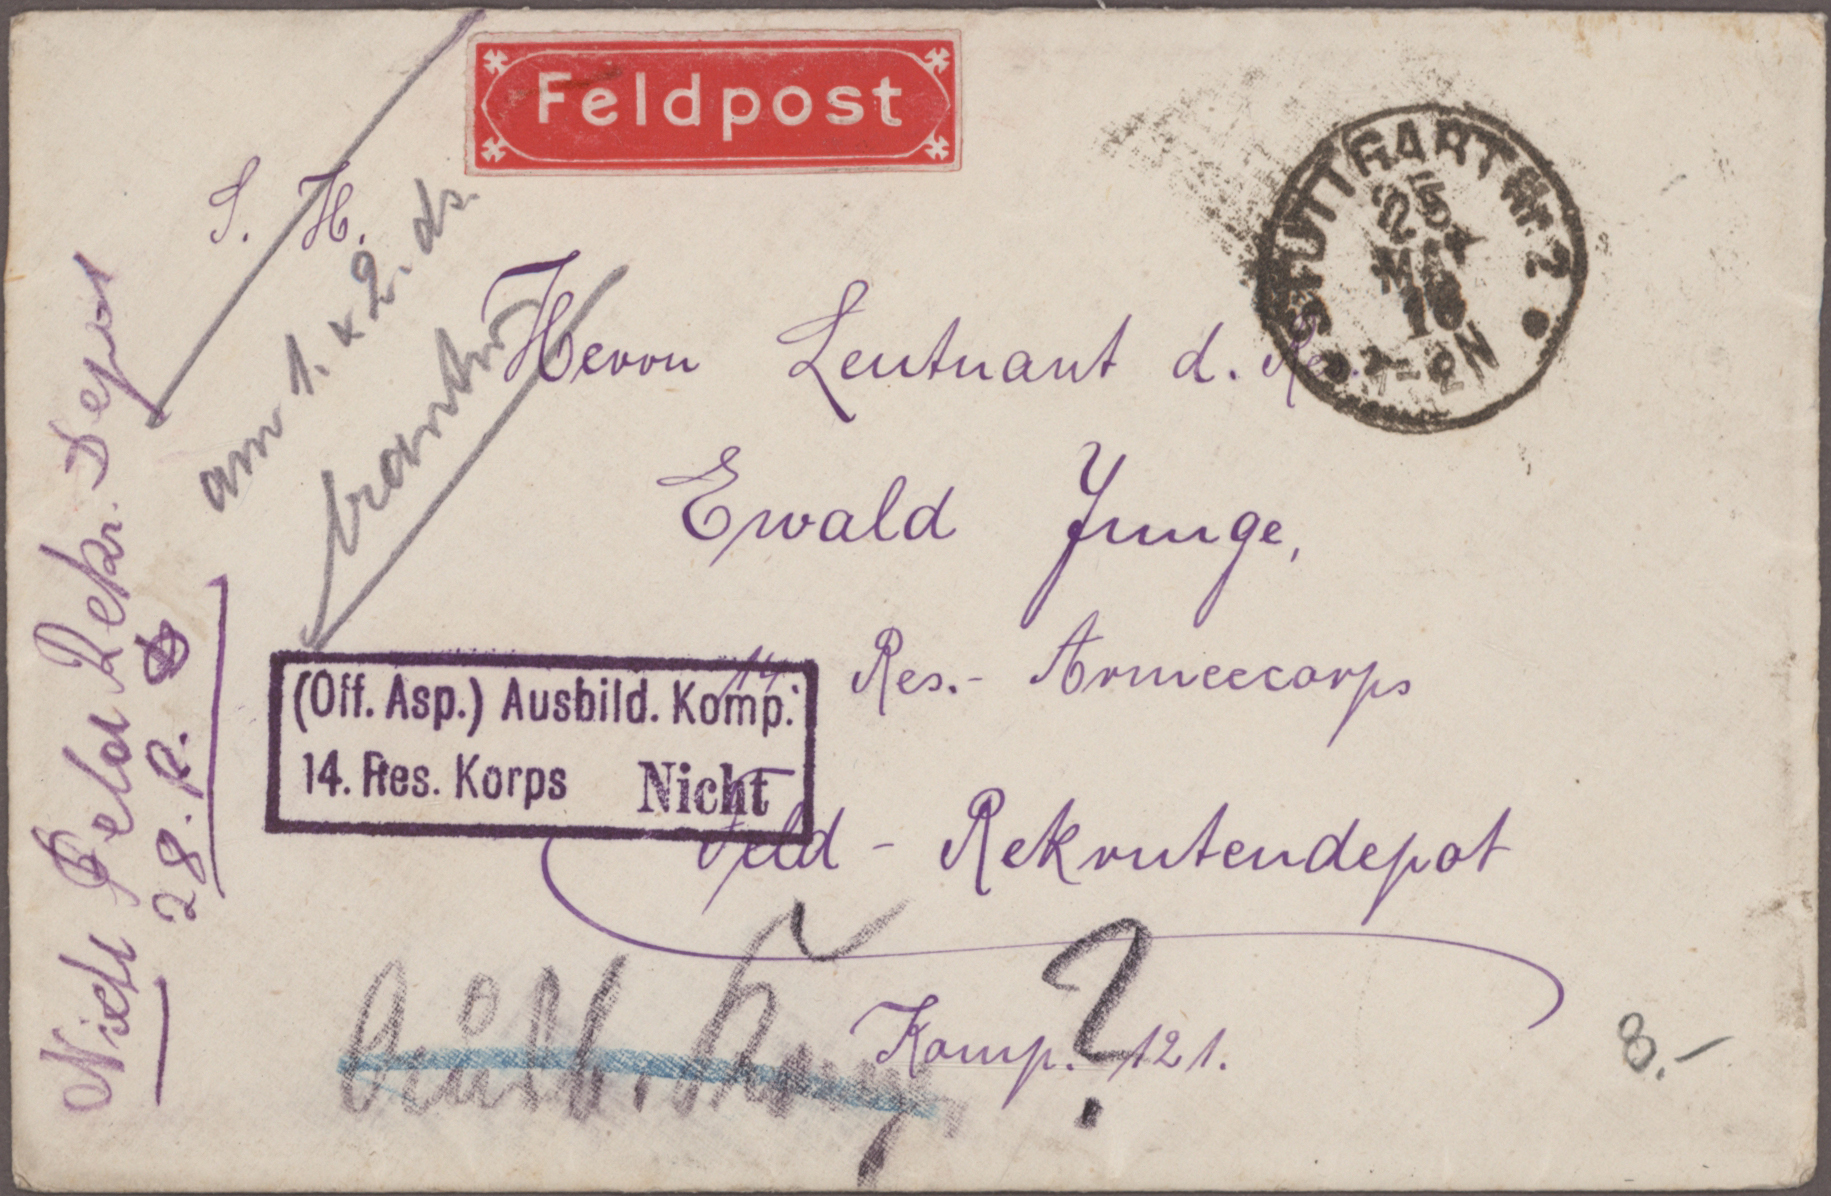 Feldpost
STUTTGART Nr. 2
25
MAI
16
7-8N
S. H.
am 1. x 2. ds.
Herrn Leutnant d. Res.
Ewald Junge,
14. Res.- Armeecorps
(Off. Asp.) Ausbild. Komp.
14. Res. Korps Nicht
Feld - Rekrutendepot
Komp. 121.
?
Nicht Feld Rekr. Depot
28. R.
8.-